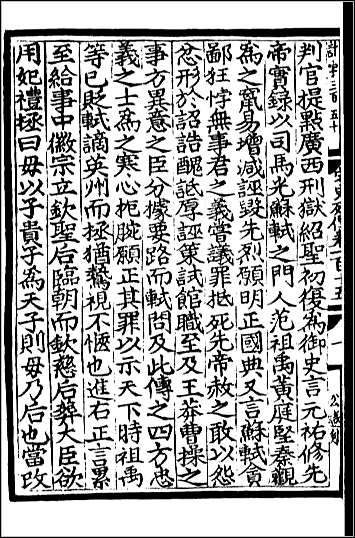 判官提點廣西刑獄紹聖初復為御史言元祐修先
帝實錄以司馬光蘇軾之門人范祖禹黃庭堅秦觀
為之竄易增减誣毀先烈願明正國典又言蘇軾貪
鄙狂悖無事君之義嘗議罪抵死先帝赦之敢以怨
忿形於詔誥醜詆厚誣策試館職至及王莽曹操之
事方異意之臣分據要路而軾問及此傳之四方忠
義之士為之寒心扼腕願正其罪以示天下時祖禹
等已貶軾謫英州而拯猶鷙視不愜也進右正言累
至給事中徽宗立欽聖后臨朝而欽慈后葬大臣欲
用妃禮拯曰母以子貴子為天子則母乃后也當改